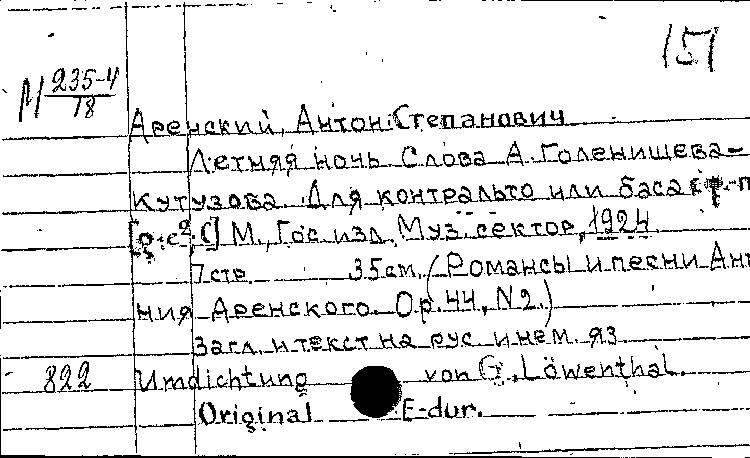 151
М 235-4
18
Аренский, Антон Степанович
Летняя ночь. Слова А. Голенищева-
Кутузова. Для контральто или баса с ф-п
[ ;С] М., Гос. изд. Муз. сектор, 1924
7 стр. 35 см. (Романсы и песни Ант
ния Аренского. Op. 44, N2.)
Загл. и текст на рус. и нем. яз.
822 Umdichtung von G. Löwenthal.
Original E-dur.